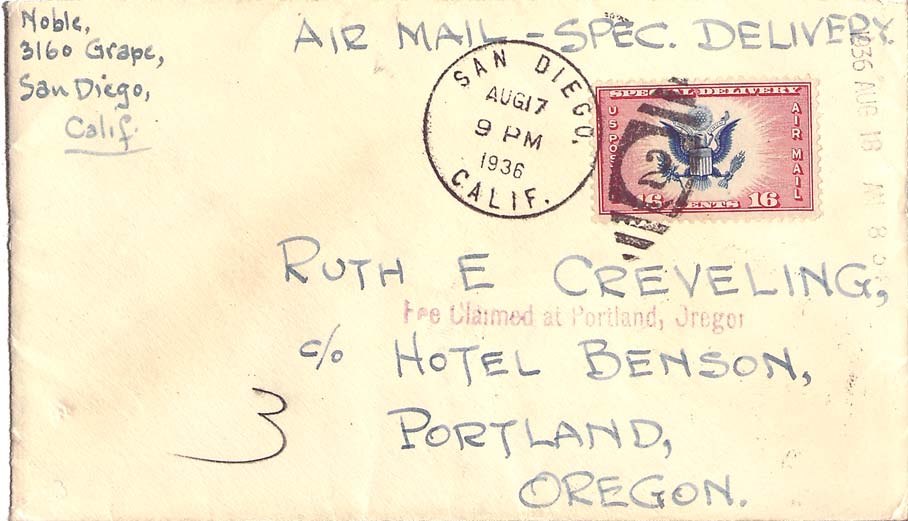 Noble,
3160 Grape,
San Diego,
Calif.
AIR MAIL - SPEC. DELIVERY.
SAN DIEGO.
AUG 17
9 PM
1936
CALIF.
SPECIAL DELIVERY
US POS
AIR MAIL
16 CENTS 16
2
1936 AUG 18 AM 8
RUTH E CREVELING,
Fee Claimed at Portland, Oregon
c/o HOTEL BENSON,
3
PORTLAND,
OREGON.